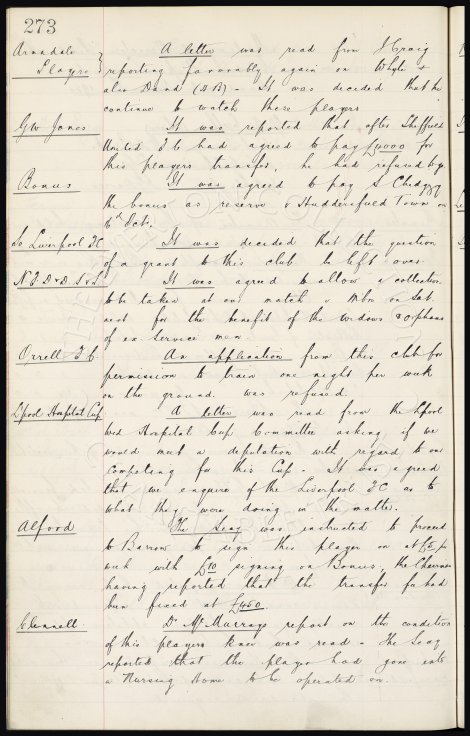 273
Arnadale Players
A letter was read from J Craig
reporting favorably again on Whyte &
also Dand (R.B) - It was decided that he
continue to watch these players
G W Jones
It was reported that after Sheffield
United F C had agreed to pay £4000 for
this players transfer, he had refused to go.
Bonus
It was agreed to pay S Chedgzoy
the bonus as reserve v Huddersfield Town on
6th Oct.
So Liverpool F.C
It was decided that the question
of a grant to this club be left over.
It was agreed to allow a collection
to be taken at our match v Mbro on Sat.
next for the benefit of the widows & orphans
of ex service men.
Orrell F.C.
An application from this club for
permission to train one night per week
on the ground was refused.
L'pool Hospital Cup
A letter was read from the L'pool
Hospital Cup Committee asking if we
would meet a deputation with regard to our
competing for this Cup - It was agreed
that we enquire of the Liverpool F.C. as to
what they were doing in the matter.
Alford
The Secy was instructed to proceed
to Barrow to sign this player on at £6 per
week with £10 signing on Bonus, the Chairman
having reported that the transfer fee had
been fixed at £450.
Clennell
Dr McMurrays report on the condition
of this players knee was read - The Secy
reported that the player had gone into
a Nursing Home to be operated on.